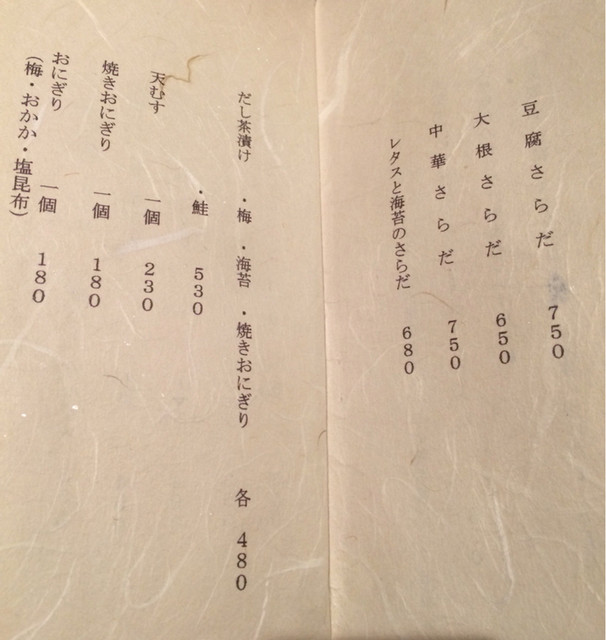 豆腐さらだ 750
大根さらだ 650
中華さらだ 750
レタスと海苔のさらだ 680
だし茶漬け ・梅 ・海苔 ・焼きおにぎり 各 480
・鮭 530
天むす 一個 230
焼きおにぎり 一個 180
おにぎり 一個 180
(梅・おかか・塩昆布)